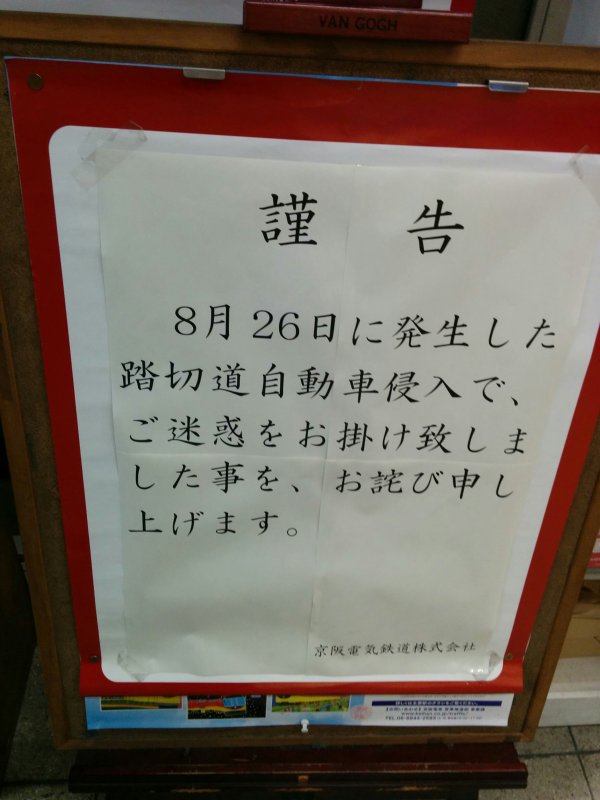 VAN GOGH
謹 告
8月26日に発生した
踏切道自動車侵入で、
ご迷惑をお掛け致しま
した事を、お詫び申し
上げます。
京阪電気鉄道株式会社